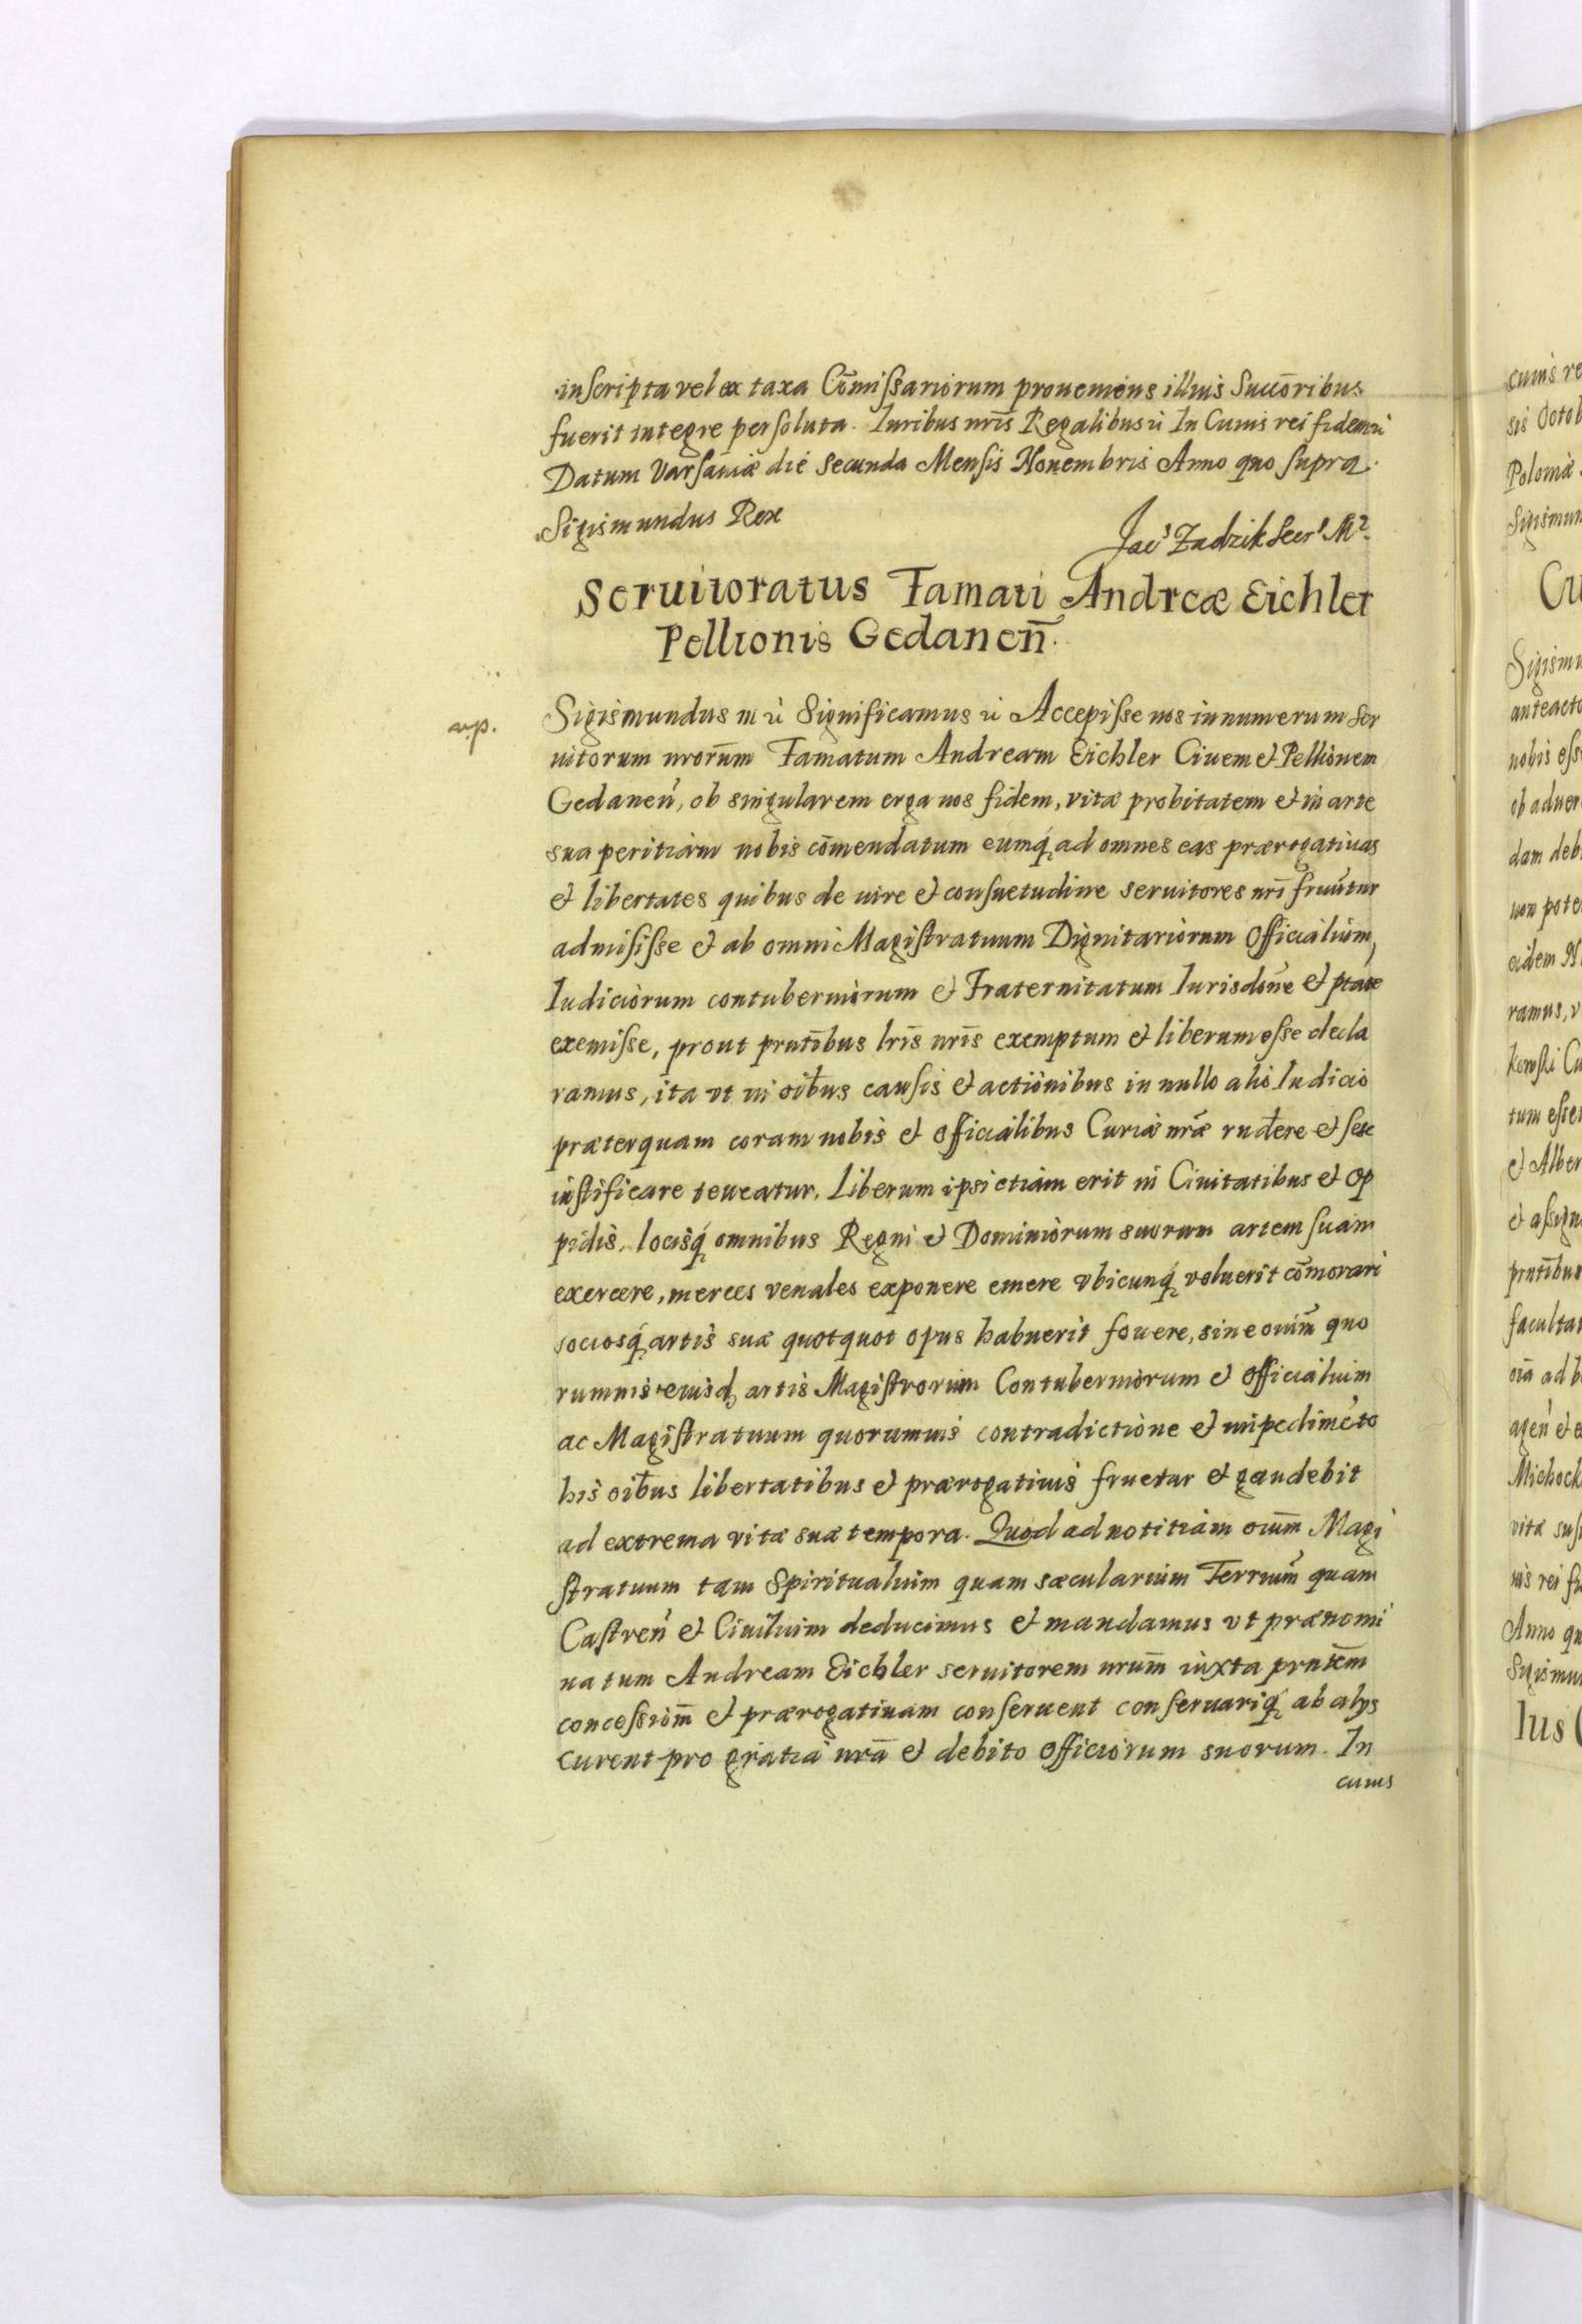 inscripta vel ex taxa Cōmissariorum proueniens illius Succōribus
fuerit integre persoluta. Iuribus nrīs Regalibus ıı In Cuius rei fidem ıı
Datum Varsauiæ die secunda Mensis Nouembris Anno quo supra.
Sigismundus Rex
Jacs Zadzik Secrs Mr
Seruitoratus Famati Andreæ Eichler
Pellionis Gedaneñ.
Sigismundus III ıı Significamus ıı Accepisse nos in numerum Ser
uitorum nrorūm Famatum Andream Eichler Ciuem et Pellionem
Gedaneń, ob singularem erga nos fidem, vitæ probitatem et in arte
sua peritiam nobis cōmendatum eumq́ ad omnes eas prærogatiuas
et libertates quibus de iure et consuetudine seruitores nrī fruūtur
admisisse et ab omni Magistratuum Dignitariorum Officialium,
Iudiciorum contuberniorum et Fraternitatum Iurisdōne et ptāte
exemisse, prout prntībus lrīs nrīs exemptum et liberum esse decla
ramus, ita vt in oībus causis et actionibus in nullo alio Iudicio
præterquam coram nobis et Officialibus Curiæ nrǣ rndēre et sese
iustificare teneatur. Liberum ipsi etiam erit in Ciuitatibus et Op
pidis, locisq́ omnibus Regni et Dominiorum suorum artem suam
exercere, merces venales exponere emere vbicunq́ voluerit cōmorari
sociosq́ artis suæ quotquot opus habuerit fouere, sine oniūm quo
rumuis eiusd artis Magistrorum Contuberniorum et Officialium
ac Magistratuum quorumuis contradictione et impedimēto
his oībus libertatibus et prærogatiuis fruetur et gaudebit
ad extrema vitæ suæ tempora. Quod ad notitiam oium̄ Magi
stratuum tam Spiritualium quam sæcularium Terrium̄ quam
Castreń et Ciuilium deducimus et mandamus vt prænomi
natum Andream Eichler seruitorem nrum̄ iuxta prntem̄
concessiom̄ et prærogatiuam conseruent conseruariq́ ab alijs
curent pro gratia nrā et debito Officiorum suorum. In
cuius